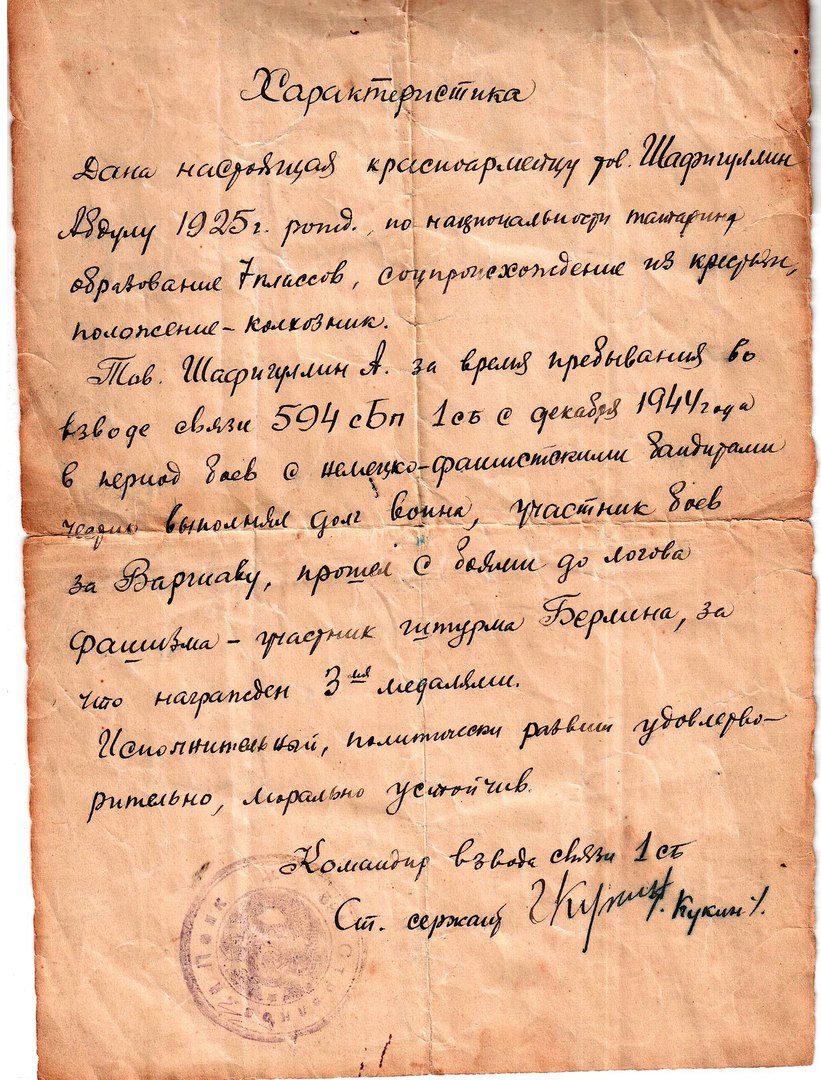 Характеристика
Дана настоящая красноармейцу тов. Шафигуллин
Абдулу 1925г. рожд., по национальности татарин,
образование 7 классов, соцпроисхождение из крестьян,
положение – колхозник.
Тов. Шафигуллин А. за время пребывания во
взводе связи 594 сбп 1сб с декабря 1944 года
в период боев с немецко-фашистскими бандитами
выполнял долг воина, участник боев
за Варшаву, прошел с боями до логова
фашизма – участник штурма Берлина, за
что награжден 3мя медалями.
Исполнительный, политически развит удовлетво-
рительно, морально устойчив.
Командир взвода связи 1 сб
Ст. сержант /. Кукин /.